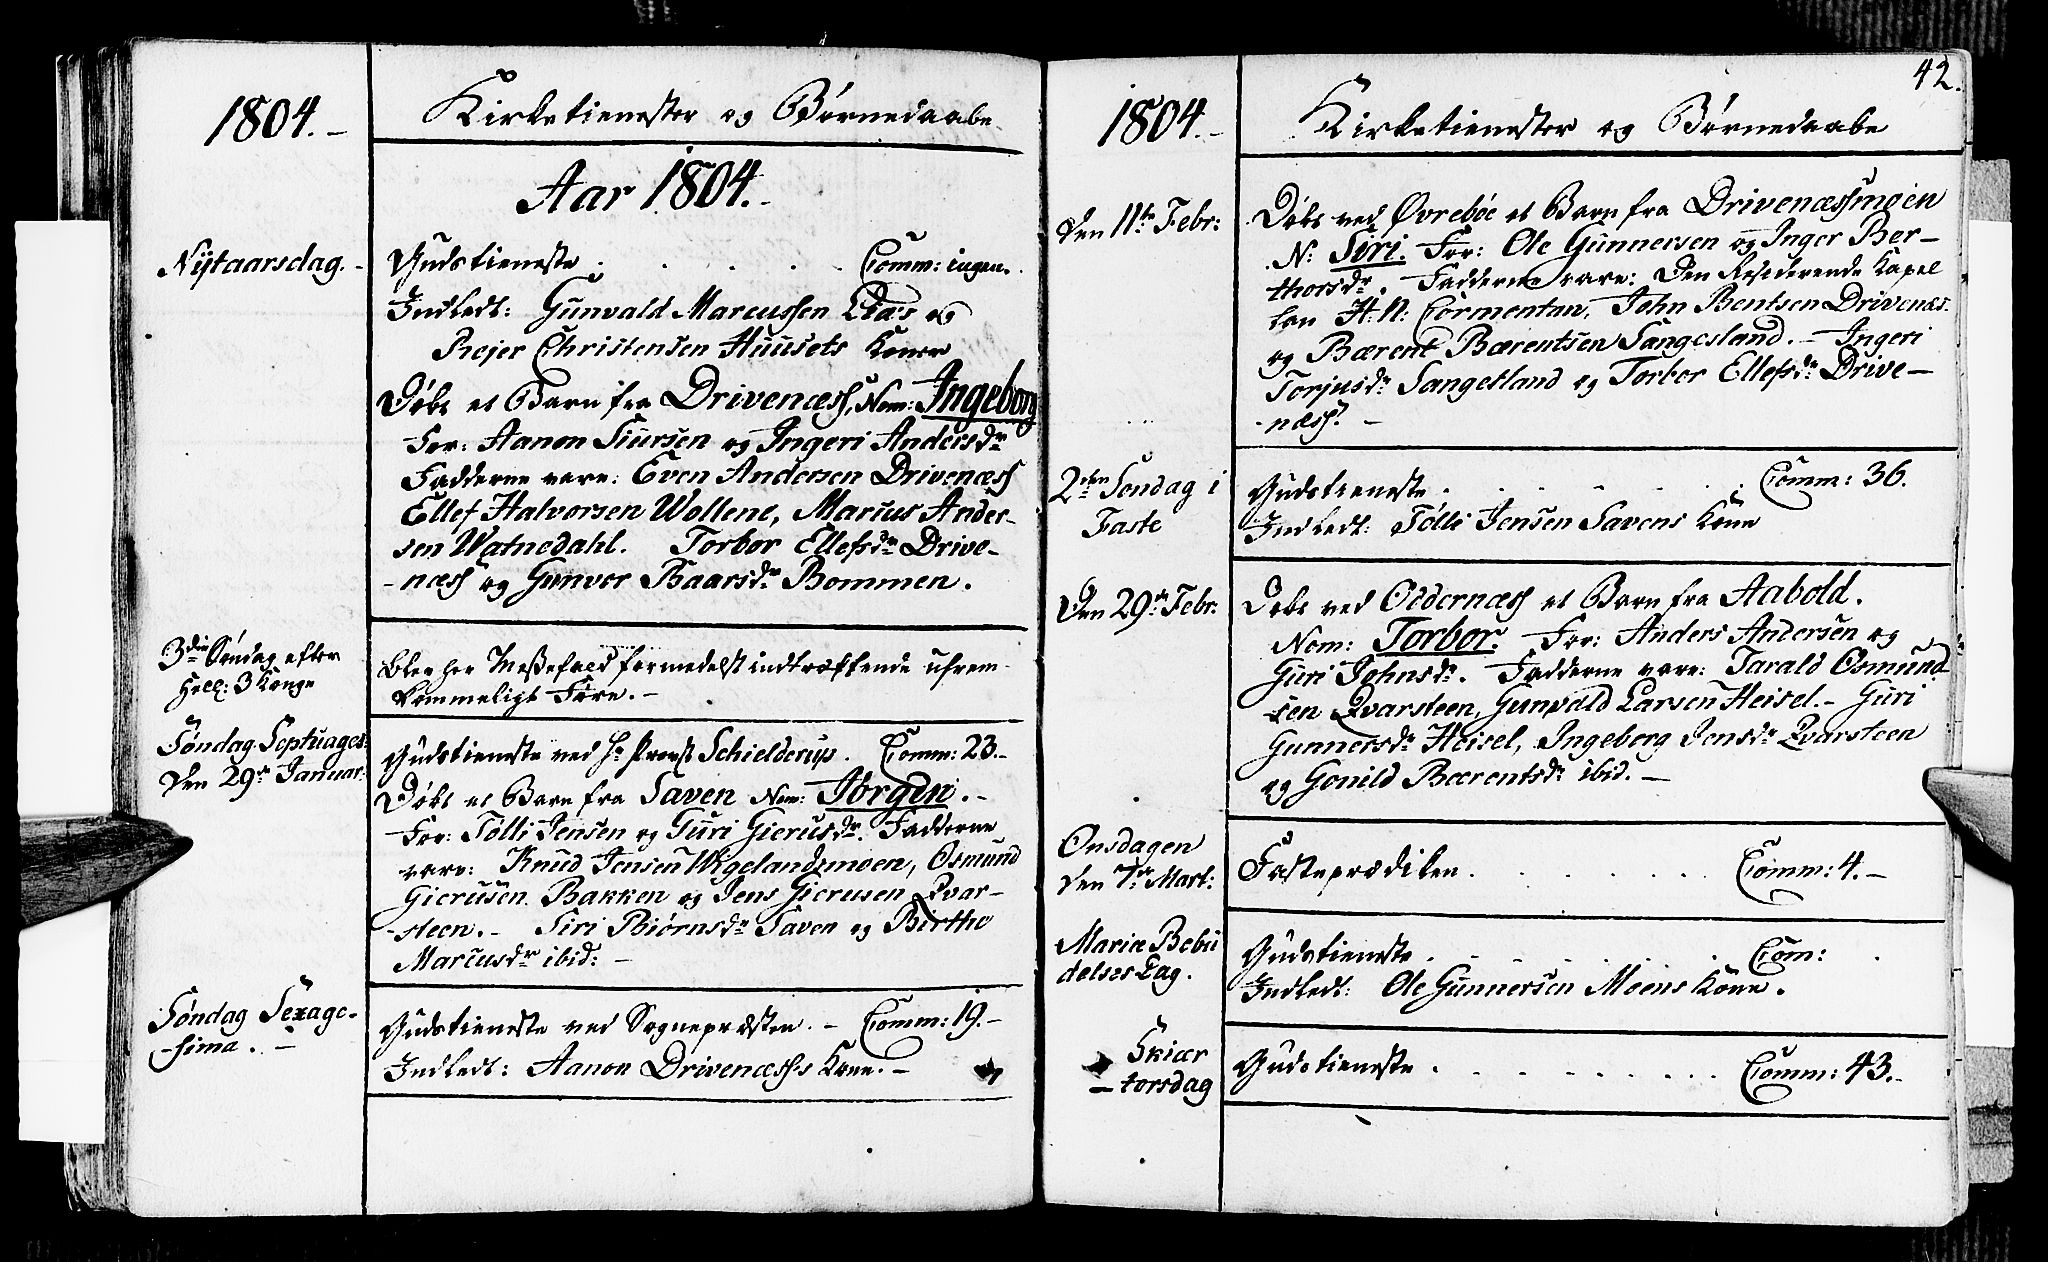 1804.
Kirketienester og Børnedaabe.
Aar 1804.
Nÿtaarsdag.
Gudstieneste . . . . Comm: ingen.
Indledt: Gunvald Marcussen Lia's og
Rejer Christensen Huusets Koner
Døbt et Barn fra Drivenæss, Nom: Ingeborg
For: Aanon Siursen og Ingeri Andersdr
Fadderne vare: Even Andersen Drivenæss
Ellef Halvorsen Wollene, Marcus Ander-
sen Watnedahl. Torbor Ellefsdr Drive-
-næss og Gunvor Baarsdr Bommen.
3die Søndag efter
Hell: 3 Konge
blev her Messefald formedelst indtræffende ufrem-
kommeligt Føre.
Søndag Septuages:
den 29de Januar:
Gudstieneste ved Hr Provst Schielderup. Comm: 23.
Døbt et Barn fra Saven Nom: Jørgen.
For: Tølli Jensen og Guri Gierusdr. Fadderne
vare: Knud Jensen Wigelandsmoen, Osmund
Gierusen Bakken og Jens Gierusen Qvar-
-steen. Siri Biørnsdr Saven og Birthe
Marcusdr ibid:
Søndag Sexage-
-sima.
Gudstieneste ved Sognepræsten. Comm: 19.
Indledt: Aanon Drivenæss's Kone.
42.
1804.
Kirketienester og Børnedaabe
den 11te Febr:
Døbt ved Øvrebøe et Barn fra Drivenæssmoen
N: Siri. For: Ole Gunnersen og Inger Ber-
thorsdr. Fadderne vare: Den Residerende Kapel
lan H. N: Cormontan, John Bentsen Drivenæs.
og Bærent Bærentsen Sangesland. Ingeri
Torjusdr Sangesland og Torbor Ellefsdr Drive-
-næss.
2den Søndag i
Faste
Gudstieneste . . . . . Comm: 36.
Indledt: Tølli Jensen Savens Kone
den 29de Febr:
Døbt ved Oddernæss et Barn fra Aabold.
Nom: Torbor. For: Anders Andersen og
Guri Johnsdr. Fadderne vare: Tarald Osmund
sen Qvarsteen, Gunvald Larsen Heisel. Guri
Gunnersdr Heisel, Ingeborg Jensdr Qvarsteen
og Gonild Bærentsdr ibid.
Onsdagen
den 7de Mart:
Fasteprædiken . . . . . Comm: 4.
Mariæ Bebu
delses Dag.
Gudstieneste . . . . . Com:
Indledt: Ole Gunnersen Moens Kone.
Skiær
-torsdag
Gudstieneste . . . . . Comm: 43.